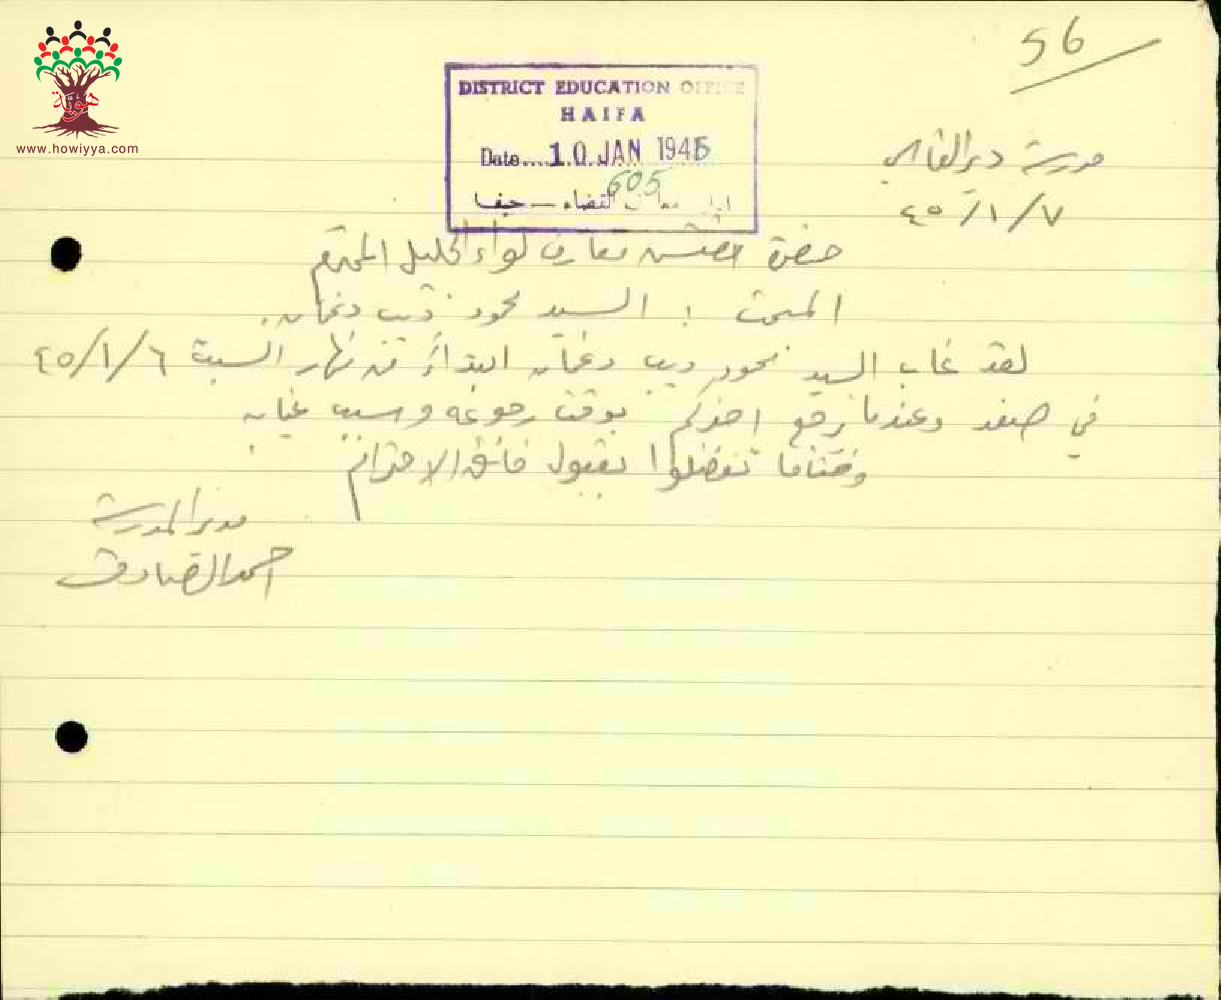 56
هوية
www.howiyya.com
DISTRICT EDUCATION OFFICE
HAIFA
Date....10 JAN 1945
605
القضاء — حيفا
مدرسة ديرالقاسي
٤٥/١/٧
حضرة مفتش معارف لواء الجليل المحترم
المبحث : السيد محمود ذيب دغمان.
لقد غاب السيد محمود ديب دغمان ابتداءً من نهار السبت ٤٥/١/٦
في صفد وعندما يرجع اخبركم بوقت رجوعه وسبب غيابه
وختاما تفضلوا بقبول فائق الاحترام
مدير المدرسة
احمد الصادق